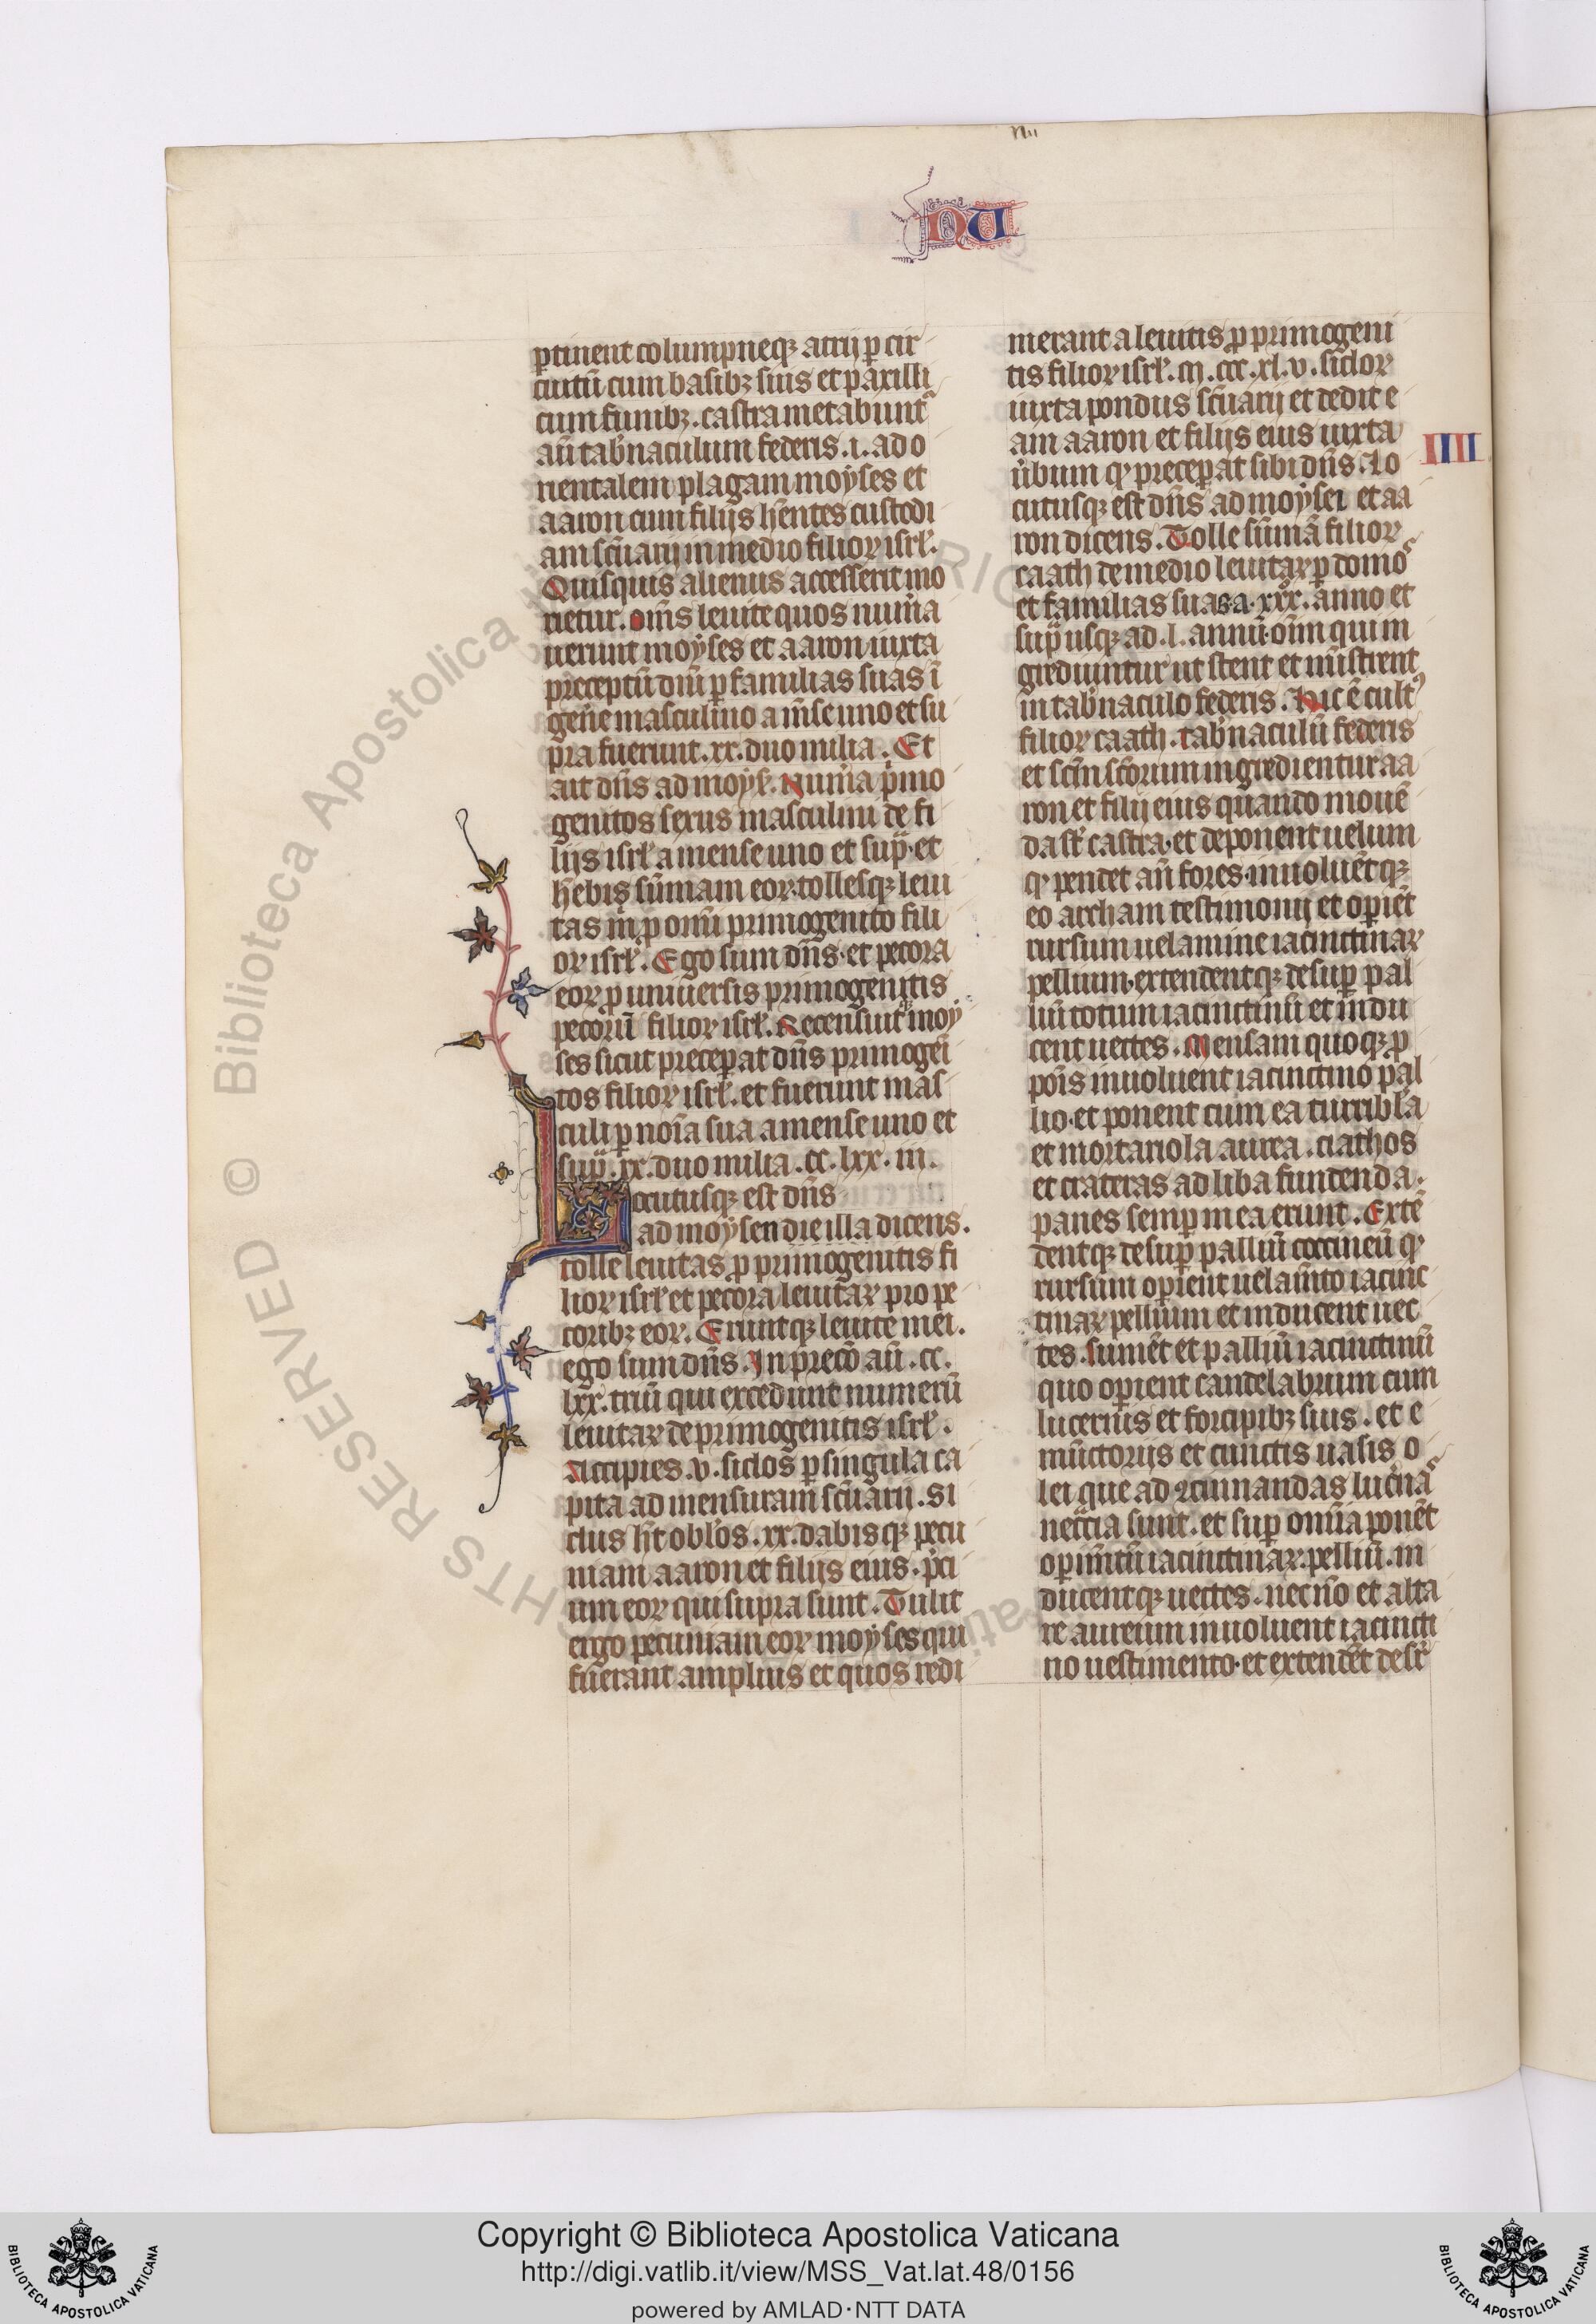 nu
ꝑtinent columpneqꝫ atrij ꝑ cir
cuitū cum basibꝫ suis et paxilli
cum funibꝫ. castrametabunt᷑
an̄ tab̾naculum federis .i. ad o
rientalem plagam moyses et
aaron cum filijs hēntes custodi
am scūarij in medio filioꝝ isrł.
Quisquis alienus accesserit mo
rietur. om̄s leuite quos num̾a
uerunt moyses et aaron iuxta
preceptū dnī ꝑ familias suas ī
gen̾e masculino a m̄se uno et su
pra fuerunt .xx. duo milia. Et
ait dn̄s ad moys̾. Num̾a p̾mo
genitos sexus masculini de fi
lijs isrł a mense uno et sup̾ et
hēbis sūmam eoꝝ. tollesqꝫ leui
tas m̾ ꝓ omī primogenito fili
oꝝ isrł. Ego sum dn̄s. et pecora
eoꝝ ꝓ uniuersis primogenitis
pecorum̄ filioꝝ isrł. Recensuit moy
ses sicut preceꝑat dn̄s primogeī
tos filioꝝ isrł. et fuerunt mas
culi ꝑ noīa sua a mense uno et
sup̾. xx. duo milia .cc. lxx. iii.
Locutusqꝫ est dn̄s
ad moysen die illa dicens.
tolle leuitas ꝓ primogenitis fi
lioꝝ isrł et pecora leuitaꝝ pro pe
coribꝫ eoꝝ. Eruntqꝫ leuite mei.
ego sum dn̄s. In precō au̅ .cc.
lxx. triū qui excedunt numerū
leuitaꝝ de primogenitis isrł.
Accipies .v. siclos ꝑ singula ca
pita ad mensuram scūarij. Si
clus ht̄ obl̾os .xx. dabisqꝫ pecu
niam aaron et filijs eius. p̾ci
um eoꝝ qui supra sunt. Tulit
ergo pecuniam eoꝝ moyses qui
fuerant amplius et quos redi
merant a leuitis ꝓ primogeni
tis filioꝝ isrł. m. ccc. xl. v. sicloꝝ
iuxta pondus scūarij et dedit e
am aaron et filijs eius iuxta
u̾bum qͦ preceꝑat sibi dn̄s. Lo
IIII
cutusqꝫ est dn̄s ad moysei et aa
ron dicens. Tolle sūmā filioꝝ
caath de medio leuitaꝝ ꝑ domoˢ
et familias suas. a .xxx. anno et
sup̾ usqꝫ ad .l. annū. om̄ qui in
grediuntur ut stent et mīstrent
in tab̾naculo federis. Hic ē cultꝰ
filioꝝ caath. tab̾naculū federis
et scm̄ scōrum ingredientur aa
ron et filij eius quando mouē
da st̄ castra. et deponent uelum
qͦ pendet an̄ fores. inuoluētqꝫ
eo archam testimonij et oꝑiēt
rursum uelamine iacinctinaꝝ
pellium. extendentqꝫ desuꝑ pal
liū totum iacinctinū et indu
cent uectes. Mensam quoqꝫ ꝓ
poīs inuoluent iacinctino pal
lio. et ponent cum ea turribl̾a
et mortariola aurea. ciathos
et crateras ad liba fundenda.
panes semꝑ in ea erunt. Extē
dentqꝫ desuꝑ palliū coccineū qͦ
rursum oꝑient uelam̄to iacinc
tinaꝝ pellium et inducent uec
tes. Sumēt et palliū iacinctinū
quo oꝑient candelabrum cum
lucernis et forcipibꝫ suis. et e
mūctorijs et cunctis uasis o
lei que ad ꝯcinnandas luc̾naˢ
necc̄ia sunt. et suꝑ omīa ponēt
oꝑim̄tū iacinctinaꝝ pelliū. in
ducentqꝫ uectes. necn̄o et alta
re aureum inuoluent iacincti
no uestimento. et extendēt desr̄
Copyright © Biblioteca Apostolica Vaticana
http://digi.vatlib.it/view/MSS_Vat.lat.48/0156
powered by AMLAD·NTT DATA
BIBLIOTECA APOSTOLICA VATICANA
BIBLIOTECA APOSTOLICA VATICANA